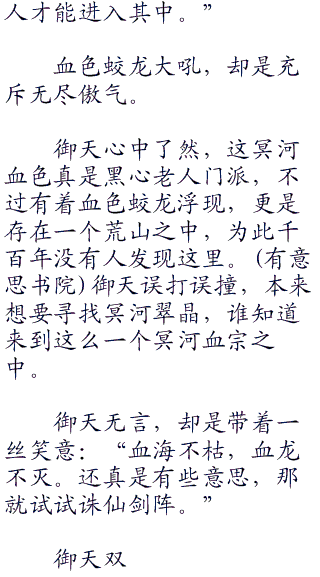 人才能进入其中。”
血色蛟龙大吼，却是充
斥无尽傲气。
御天心中了然，这冥河
血色真是黑心老人门派，不
过有着血色蛟龙浮现，更是
存在一个荒山之中，为此千
百年没有人发现这里。(有意
思书院)御天误打误撞，本来
想要寻找冥河翠晶，谁知道
来到这么一个冥河血宗之
中。
御天无言，却是带着一
丝笑意：“血海不枯，血龙
不灭。还真是有些意思，那
就试试诛仙剑阵。”
御天双